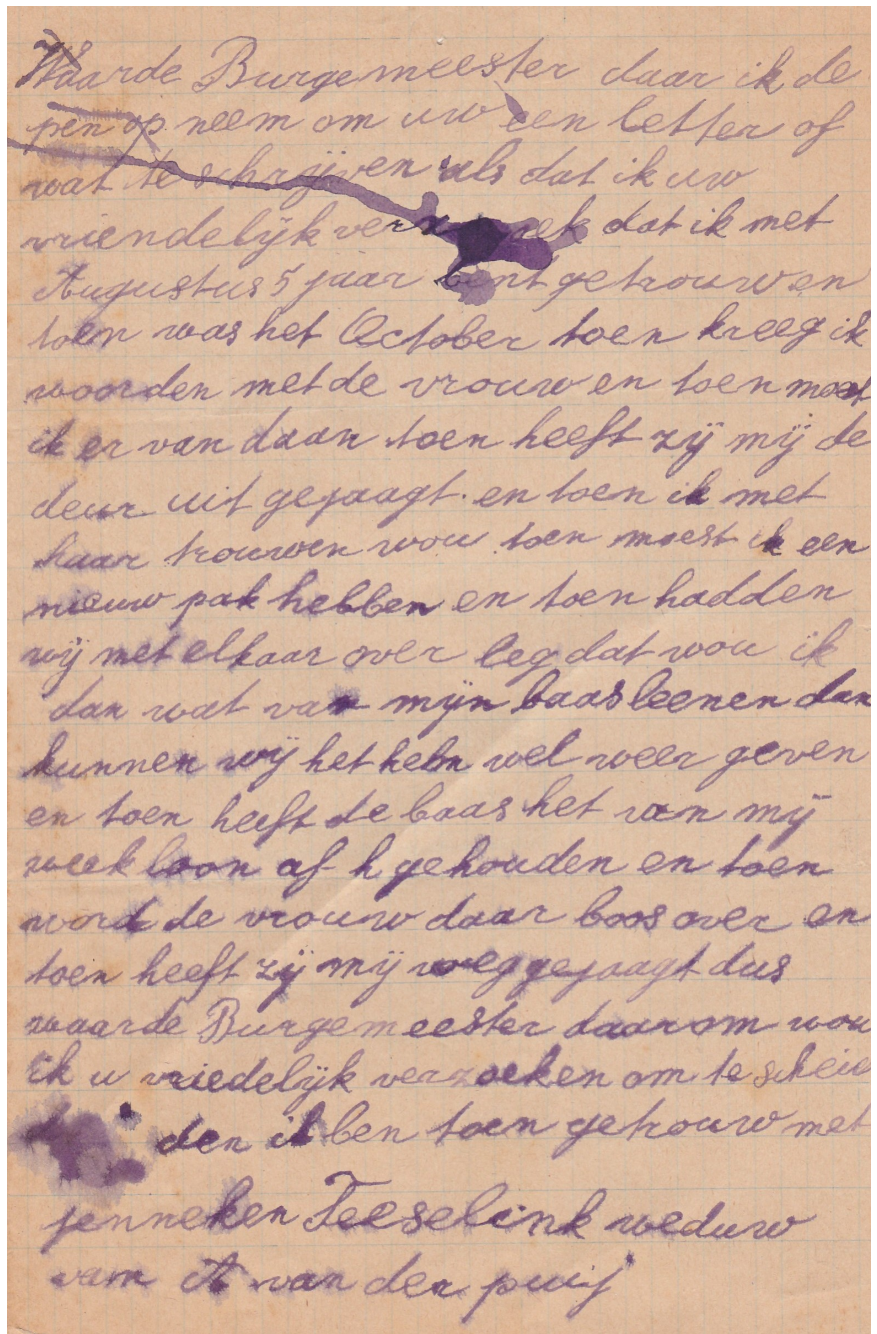 Waarde Burgemeester daar ik de
pen op neem om uw een letter of
wat te schrijven als dat ik uw
vriendelijk dat ik met
Augustus 5 jaar bent getrouwen
toen was het October toen kreeg ik
woorden met de vrouw en toen moest
ik er van daan toen heeft zij mij de
deur uit gejaagt. en toen ik met
haar trouwen wou toen moest ik een
nieuw pak hebben en toen hadden
wij met elkaar over leg dat wou ik
dan wat van mijn baas leenen dan
kunnen wij het hebn wel weer geven
en toen heeft de baas het van mij
week loon af h gehouden en toen
word de vrouw daar boos over en
toen heeft zij mij weg gejaagt dus
waarde Burgemeester daarom wou
ik u vriedelijk verzoeken om te schei
den ik ben toen getrouw met
jenneken Teeselink weduw
van A van der puij